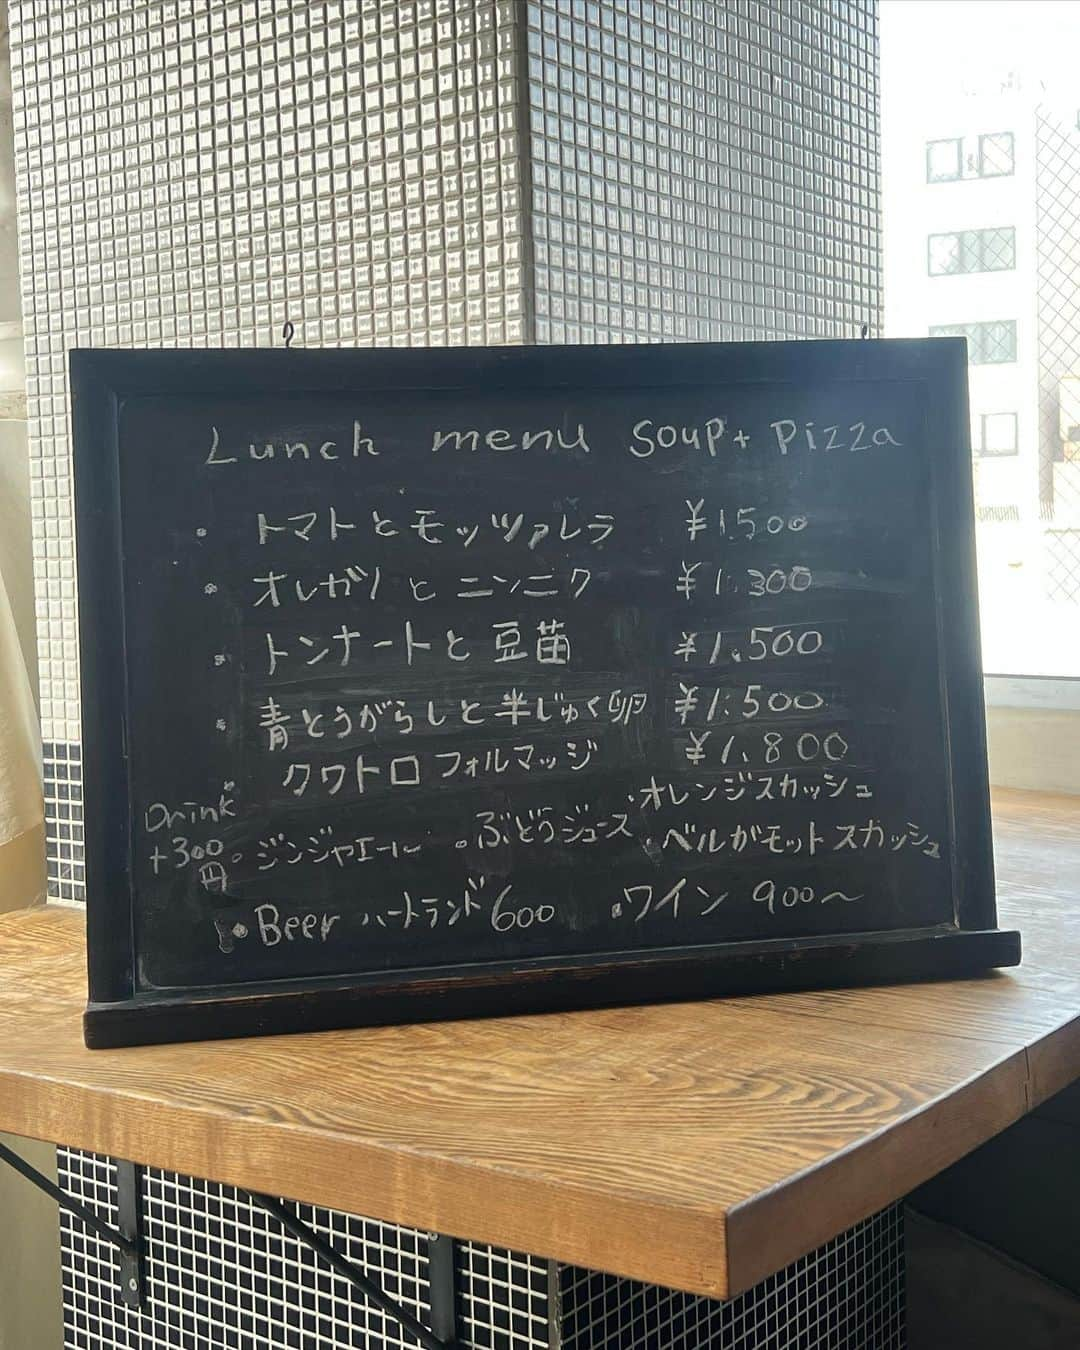 Lunch menu Soup + Pizza
・トマトとモッツァレラ ¥1500
・オレガノとニンニク ¥1.300
・トンナートと豆苗 ¥1.500
・青とうがらしと半じゅく卵 ¥1.500
・クワトロフォルマッジ ¥1.800
Drink +300円
・ジンジャエール ・ぶどうジュース ・オレンジスカッシュ
・ベルガモットスカッシュ
・Beer ハートランド 600 ・ワイン 900〜